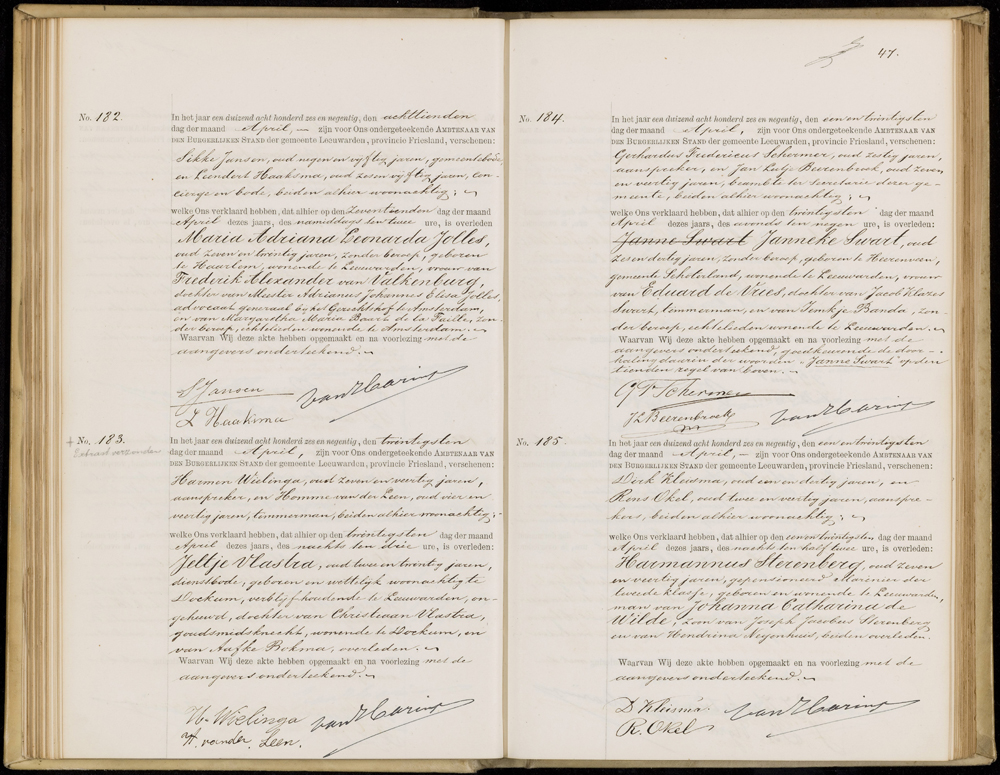 No. 182.
In het jaar een duizend acht honderd zes en negentig, den achttienden
dag der maand April, — zijn voor Ons ondergeteekende AMBTENAAR VAN
DEN BURGERLIJKEN STAND der gemeente Leeuwarden, provincie Friesland, verschenen:
Sikke Jansen, oud negen en vijftig jaren, gemeentebode
en Leendert Haaksma, oud zes en vijftig jaren, con-
cierge en bode, beiden alhier woonachtig;
welke Ons verklaard hebben, dat alhier op den Zeventienden dag der maand
April dezes jaars, des namiddags ten twee ure, is overleden
Maria Adriana Leonarda Jolles,
oud zeven en twintig jaren, zonder beroep, geboren
te Haarlem, wonende te Leeuwarden, vrouw van
Frederik Alexander van Valkenburg,
dochter van Meester Adrianus Johannes Elisa Jolles,
advocaat generaal bij het Gerechtshof te Amsterdam,
en van Margaretha Maria Baart de la Faille, zon-
der beroep, echtelieden wonende te Amsterdam.
Waarvan Wij deze akte hebben opgemaakt en na voorlezing met de
aangevers onderteekend.
S Jansen
L Haaksma
van Haring
+ No. 183.
Extract verzonden
In het jaar een duizend acht honderd zes en negentig, den twintigsten
dag der maand April, zijn voor Ons ondergeteekende AMBTENAAR VAN
DEN BURGERLIJKEN STAND der gemeente Leeuwarden, provincie Friesland, verschenen:
Harmen Wielinga, oud zeven en veertig jaren,
aanspreker, en Homme van der Leen, oud vier en
veertig jaren, timmerman, beiden alhier woonachtig;
welke Ons verklaard hebben, dat alhier op den twintigsten dag der maand
April dezes jaars, des nachts ten drie ure, is overleden:
Jeltje Vlastra, oud twee en twintig jaren,
dienstbode, geboren en wettelijk woonachtig te
Dockum, verblijfhoudende te Leeuwarden, on-
gehuwd, dochter van Christiaan Vlastra,
goudsmedsknecht, wonende te Dockum, en
van Aafke Bokma, overleden.
Waarvan Wij deze akte hebben opgemaakt en na voorlezing met de
aangevers onderteekend.
H. Wielinga
H. van der Leen.
van Haring
47.
No. 184.
In het jaar een duizend acht honderd zes en negentig, den een en twintigsten
dag der maand April, zijn voor Ons ondergeteekende AMBTENAAR VAN
DEN BURGERLIJKEN STAND der gemeente Leeuwarden, provincie Friesland, verschenen:
Gerhardus Fredericus Schermer, oud zestig jaren,
aanspreker, en Jan Lutje Beerenbrook, oud zeven
en veertig jaren, beambte ter Secretarie dezer ge-
meente, beiden alhier woonachtig;
welke Ons verklaard hebben, dat alhier op den twintigsten dag der maand
April dezes jaars, des avonds ten negen ure, is overleden:
Janne Swart Janneke Swart, oud
zes en dertig jaren, zonder beroep, geboren te Heerenveen,
gemeente Schoterland, wonende te Leeuwarden, vrouw
van Eduard de Vries, dochter van Jacob Klazes
Swart, timmerman, en van Jemkje Banda, zon-
der beroep, echtelieden wonende te Leeuwarden.
Waarvan Wij deze akte hebben opgemaakt en na voorlezing met de
aangevers onderteekend, goedkeurende de door-
haling daarin der woorden "Janne Swart" op den
tienden regel van boven.
G F Schermer
JL Beerenbrook
van Haring
No. 185.
In het jaar een duizend acht honderd zes en negentig, den een en twintigsten
dag der maand April, — zijn voor Ons ondergeteekende AMBTENAAR VAN
DEN BURGERLIJKEN STAND der gemeente Leeuwarden, provincie Friesland, verschenen:
Dirk Kleisma, oud een en dertig jaren, en
Rens Okel, oud twee en veertig jaren, aanspre-
kers, beiden alhier woonachtig;
welke Ons verklaard hebben, dat alhier op den een en twintigsten dag der maand
April dezes jaars, des nachts ten half twee ure, is overleden:
Harmannus Sterenberg, oud zeven
en veertig jaren, gepensioneerd Marinier der
tweede klasse, geboren en wonende te Leeuwarden,
man van Johanna Catharina de
Wilde, zoon van Joseph Jacobus Sterenberg
en van Hendrina Neijenhuis, beiden overleden.
Waarvan Wij deze akte hebben opgemaakt en na voorlezing met de
aangevers onderteekend.
D Kleisma
R. Okel
van Haring